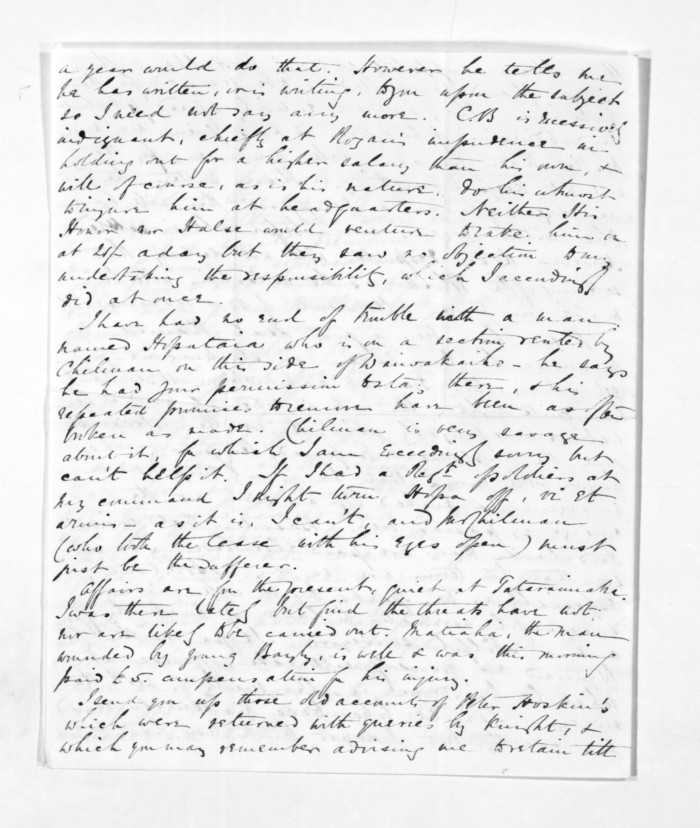 a year would do that. However he tells me
he has written, or is writing, to you upon the subject
so I need not say any more. CB is excessively
indignant, chiefly at Rogan's impudence in
holding out for a higher salary than his own, &
will of course, as is his nature, do his utmost
to injure him at headquarters. Neither His
Honor nor Halse would venture to take him on
at 20/- a day but they saw no objection to my
undertaking the responsibility, which I accordingly
did at once.
I have had no end of trouble with a man
named Hipataia who is on a section rented by
Chilman on this side of Waiwakaiho - he says
he had your permission to stay there, & his
repeated promises to remove have been as often
broken as made. Chilman is very savage
about it, for which I am exceedingly sorry but
can't help it. If I had a Regt. of soldiers at
my command I might turn Hipa off, vi et
armis - as it is, I can't, and Mr Chilman
(who took the lease with his eyes open) must
just be the sufferer.
Affairs are for the present, quiet at Tataraimaka.
I was there lately but find the threats have not
nor are likely to be carried out. Matiaha, the man
wounded by young Bayly, is well & was this morning
paid £5. compensation for his injury.
I send you up those old accounts of Peter Hoskin's
which were returned with queries by Knight, &
which you may remember advising me to retain till